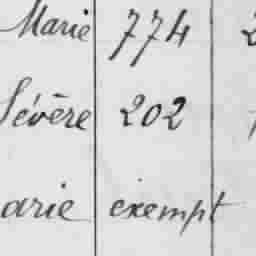 Marie 774 2
Sévère 202
arie exempt